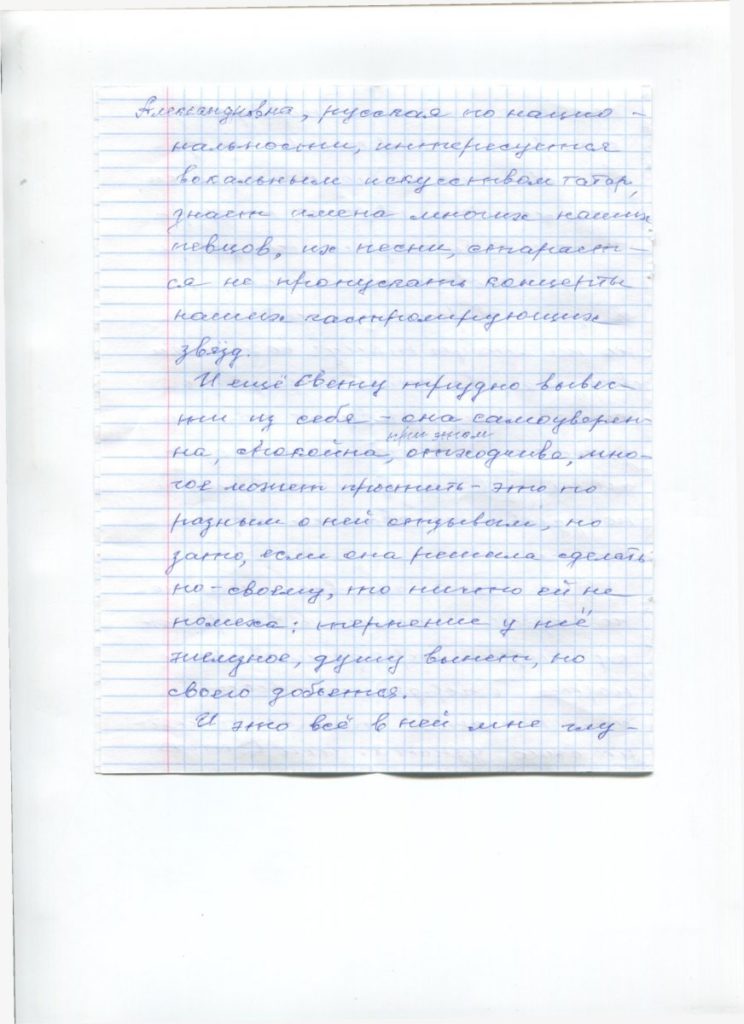 Александровна, русская по нацио-
нальности, интересуется
вокальным искусством татар,
знает имена многих наших
певцов, их песни, старает-
ся не пропускать концерты
наших гастролирующих
звёзд.
И ещё Свету трудно вывес-
ти из себя - она самоуверен-
при этом
на, спокойна, отходчива, мно-
гое может простить - это по
разным о ней отзывам, но
зато, если она решила сделать
по-своему, то ничто ей не
помеха: терпение у неё
железное, душу вынет, но
своего добьется.
И это всё в ней мне глу-